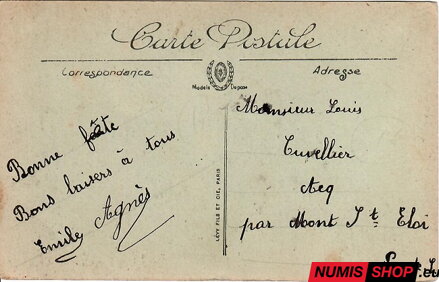 Carte Postale
Correspondance
Adresse
Modèle Déposé
Bonne fête
Bons baisers à tous
Emile Agnès
LÉVY FILS ET CIE, PARIS
Monsieur Louis
Cuvellier
Acq
par Mont St Eloi
NUMIS SHOP.eu